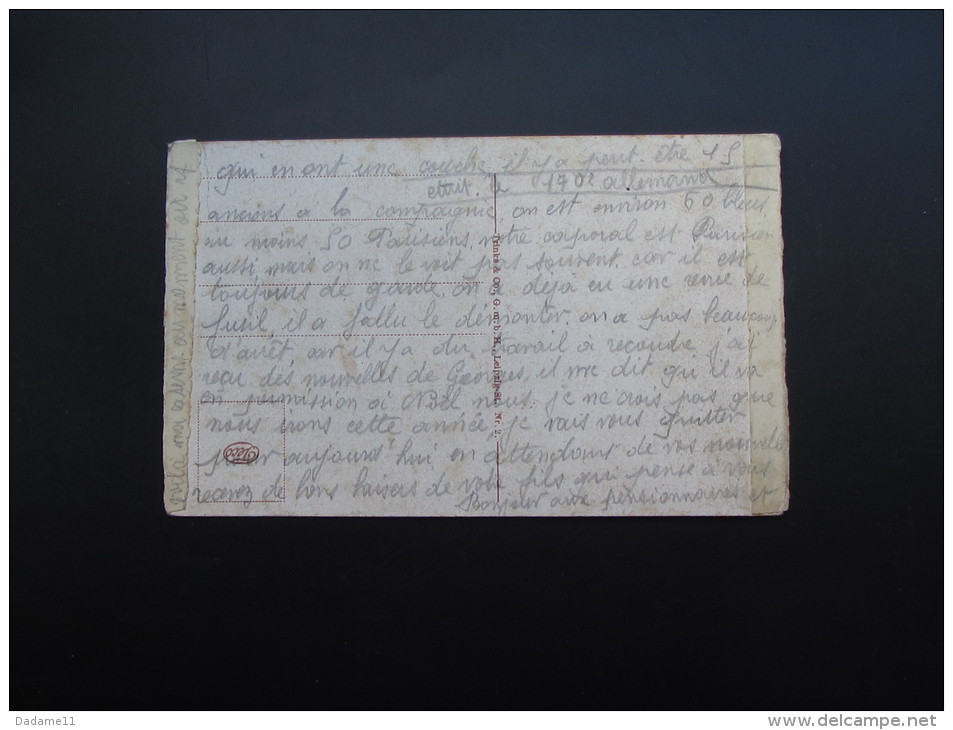 qui en ont une couche, il y a peut-être 15
était le 170e allemand
anciens a la compagnie, on est environ 60 bleus
au moins 50 Parisiens, notre caporal est Parisien
aussi mais on ne le voit pas souvent car il est
toujours de garde. on a déjà eu une revue de
fusil, il a fallu le démonter. on a pas beaucoup
d'arrêt, car il y a du travail à recoudre j'ai
reçu des nouvelles de Georges, il me dit qu'il va
en permission à Noël nous je ne crois pas que
nous irons cette année, je vais vous quitter
pour aujourd'hui en attendans de vos nouvelles
recevez de bons baisers de votre fils qui pense à vous
Bonjour aux pensionnaires et
voila
Trinks & Co., G. m. b. H., Leipzig-St. Nr. 2.
Dadame11
http://www.delcampe.net